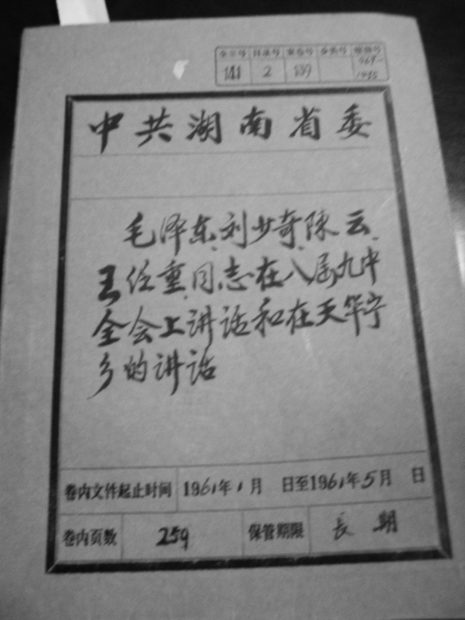 全宗号 目录号 案卷号
141 2 139
中共湖南省委
毛泽东、刘少奇、陳云、
王任重同志在八届九中
全会上讲话和在天华宁
乡的讲话
卷内文件起止时间 1961年1月 日至1961年5月 日
卷内页数 259 保管期限 長期